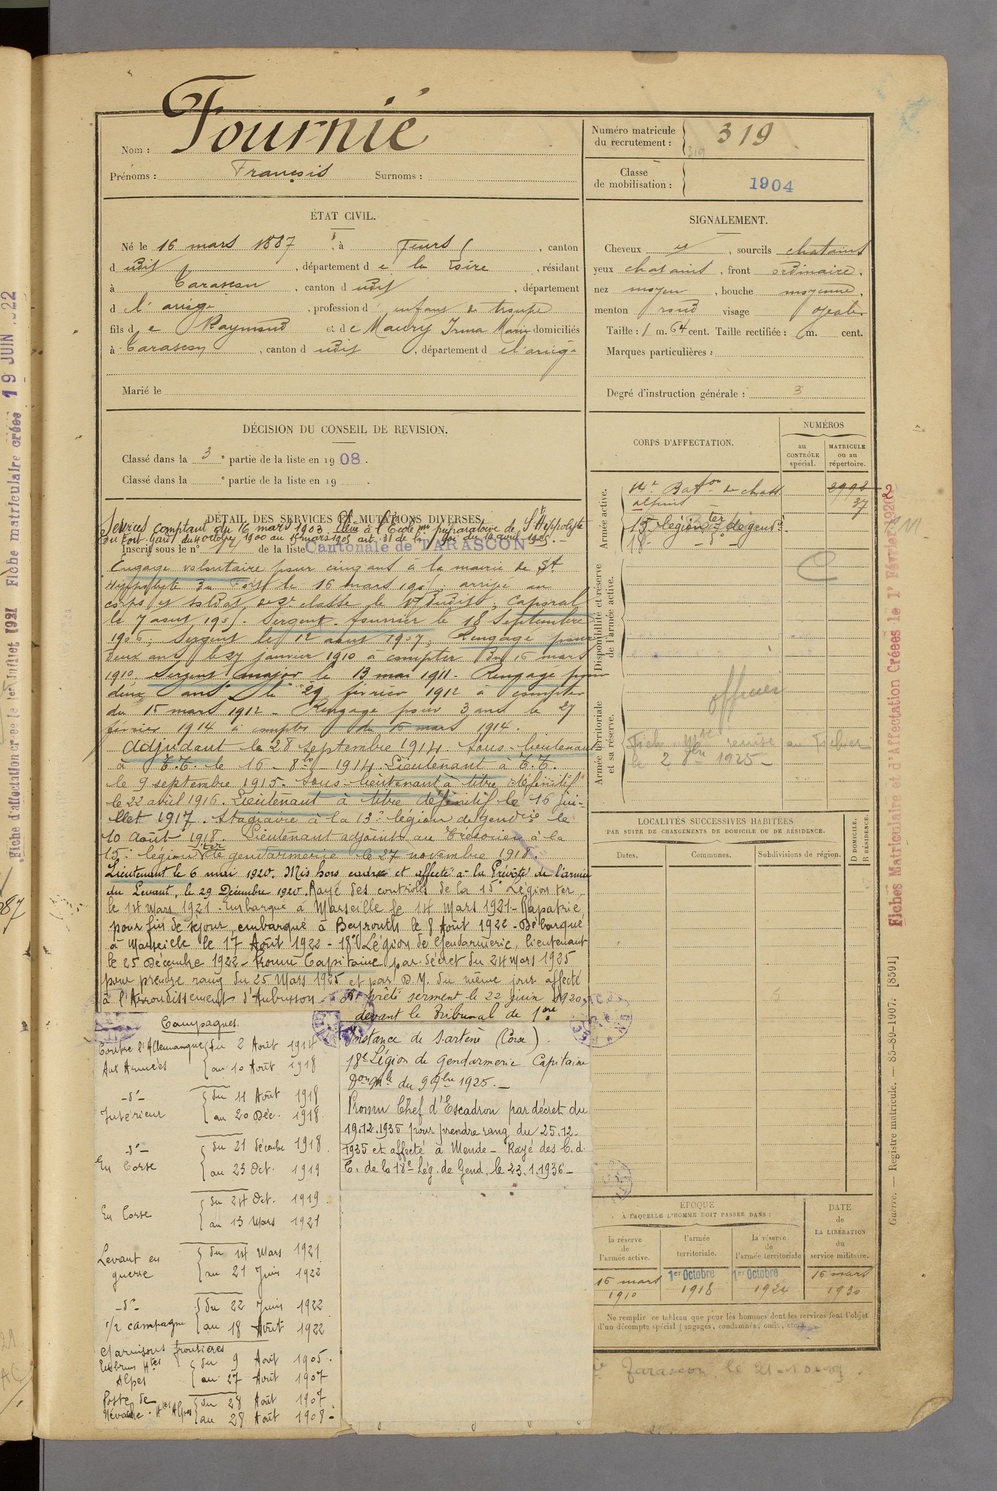 Nom : Fournié
Prénoms : François Surnoms :
Numéro matricule du recrutement : 319
Classe de mobilisation : 1904
ÉTAT CIVIL.
Né le 16 mars 1887, à Feurs, canton
dudit, département de la Loire, résidant
à Tarascon, canton dudit, département
d l'ariège, profession d enfant de troupe
fils de Raymond et de Maury Irma Marie domiciliés
à Tarascon, canton dudit, département de l'ariège
Marié le
SIGNALEMENT.
Cheveux et, sourcils chatains
yeux chatains, front ordinaire,
nez moyen, bouche moyenne,
menton rond visage ovale
Taille : 1 m. 64 cent. Taille rectifiée : m. cent.
Marques particulières :
Degré d'instruction générale : 3
DÉCISION DU CONSEIL DE REVISION.
Classé dans la 3e partie de la liste en 1908.
Classé dans la e partie de la liste en 19 .
DÉTAIL DES SERVICES ET MUTATIONS DIVERSES.
Services comptant du 16 mars 1903 Elève à l'Ecole mre préparatoire de St Hippolyte
du Fort Gard du octobre 1900 au 15 mars 1905 art. 31 de la loi du
Inscrit sous le n° 14 de la liste Cantonale de TARASCON
Engagé volontaire pour cinq ans à la mairie de St
Hippolyte du Fort le 16 mars 1905, arrivé au
corps et soldat de 2e classe le dit, Caporal
le 7 aout 1905. Sergent fourrier le 18 Septembre
1906, Sergent le 12 aout 1907, Rengagé pour
deux ans le 27 janvier 1910 à compter du 16 mars
1910. Sergent major le 13 mai 1911. Rengagé pour
deux ans le 29 février 1912 à compter
du 15 mars 1912 - Rengagé pour 3 ans le 27
février 1914 à compter du 15 mars 1914.
Adjudant le 28 septembre 1914. Sous-lieutenant
à T.T. le 16 - 8bre - 1914. Lieutenant à T.T.
le 9 septembre 1915. Sous-lieutenant à titre définitif
le 22 avril 1916. Lieutenant à titre définitif le 16 jui-
llet 1917. Stagiaire à la 13e légion de gendrie le
10 Août 1918. Lieutenant adjoint au Trésorier à la
15e légion ter de gendarmerie le 27 novembre 1918.
Lieutenant le 6 mai 1920. Mis hors cadres et affecté à la Prévôté de l'armée
du Levant, le 29 Décembre 1920. Rayé des contrôles de la 15e Légion ter
le 14 Mars 1921. Embarqué à Marseille le 14 Mars 1921 - Rapatrié
pour fin de séjour, embarqué à Beyrouth le 8 Août 1922 - Débarqué
à Marseille le 17 Août 1922 - 18e Légion de Gendarmerie, lieutenant
le 25 Décembre 1922 - Promu Capitaine par décret du 24 Mars 1925
pour prendre rang du 25 Mars 1925 et par D.M. du même jour affecté
à l'Arrondissement d'Aubusson. A prêté serment le 22 juin 1920
devant le Tribunal de 1ère
Instance de Sartène (Corse).
18e Légion de Gendarmerie Capitaine
Don Mle du 9 9bre 1925. -
Promu Chef d'Escadron par décret du
19.12.1935 pour prendre rang du 25.12.
1935 et affecté à Mende - Rayé des C. de
C. de la 18e Lég. de Gend. le 23.1.1936 -
Campagnes.
Contre l'Allemagne { du 2 Août 1914
Aux Armées { au 10 Août 1918
-d°- { du 11 Août 1918
Intérieur { au 20 Déc. 1918
-d°- { du 21 décembre 1918
En Corse { au 23 Oct. 1919
En Corse { du 24 Oct. 1919
{ au 13 Mars 1921
Levant en { du 14 Mars 1921
guerre { au 21 Juin 1922
-d°- { du 22 Juin 1922
1/2 campagne { au 18 Août 1922
Garnisons frontières
Embrun Htes { du 9 Août 1905.
Alpes { au 27 Août 1907
Poste de { du 28 Août 1907
Névache - Htes Alpes { au 28 Août 1908 -
CORPS D'AFFECTATION.
NUMÉROS
au CONTRÔLE spécial.
MATRICULE ou au répertoire.
Armée active.
14e Baton de chass alpins
2992
37
15e légion ter de gendie
18e - d° -
Disponibilité et réserve de l'armée active.
officier
Armée territoriale et sa réserve.
Fiche mle remise au Fichier
le 2 8bre 1925 -
LOCALITÉS SUCCESSIVES HABITÉES
PAR SUITE DE CHANGEMENTS DE DOMICILE OU DE RÉSIDENCE.
Dates. Communes. Subdivisions de région. D DOMICILE. R RÉSIDENCE.
ÉPOQUE
À LAQUELLE L'HOMME DOIT PASSER DANS :
la réserve de l'armée active.
l'armée territoriale.
la réserve de l'armée territoriale
DATE de LA LIBÉRATION du service militaire.
16 mars 1910
1er Octobre 1918
1er Octobre 1924
16 mars 1930
Ne remplir ce tableau que pour les hommes dont les services font l'objet
d'un décompte spécial (engagés, condamnés, omis, etc.).
Tarascon, le
Guerre. — Registre matricule. — 85-89-1907. [8591]
Fiches Matriculaire et d'Affectation Créées le 1er Février 1926
Fiche d'affectation créée le 1er Juillet 1921 Fiche matriculaire créée 19 JUIN 1922